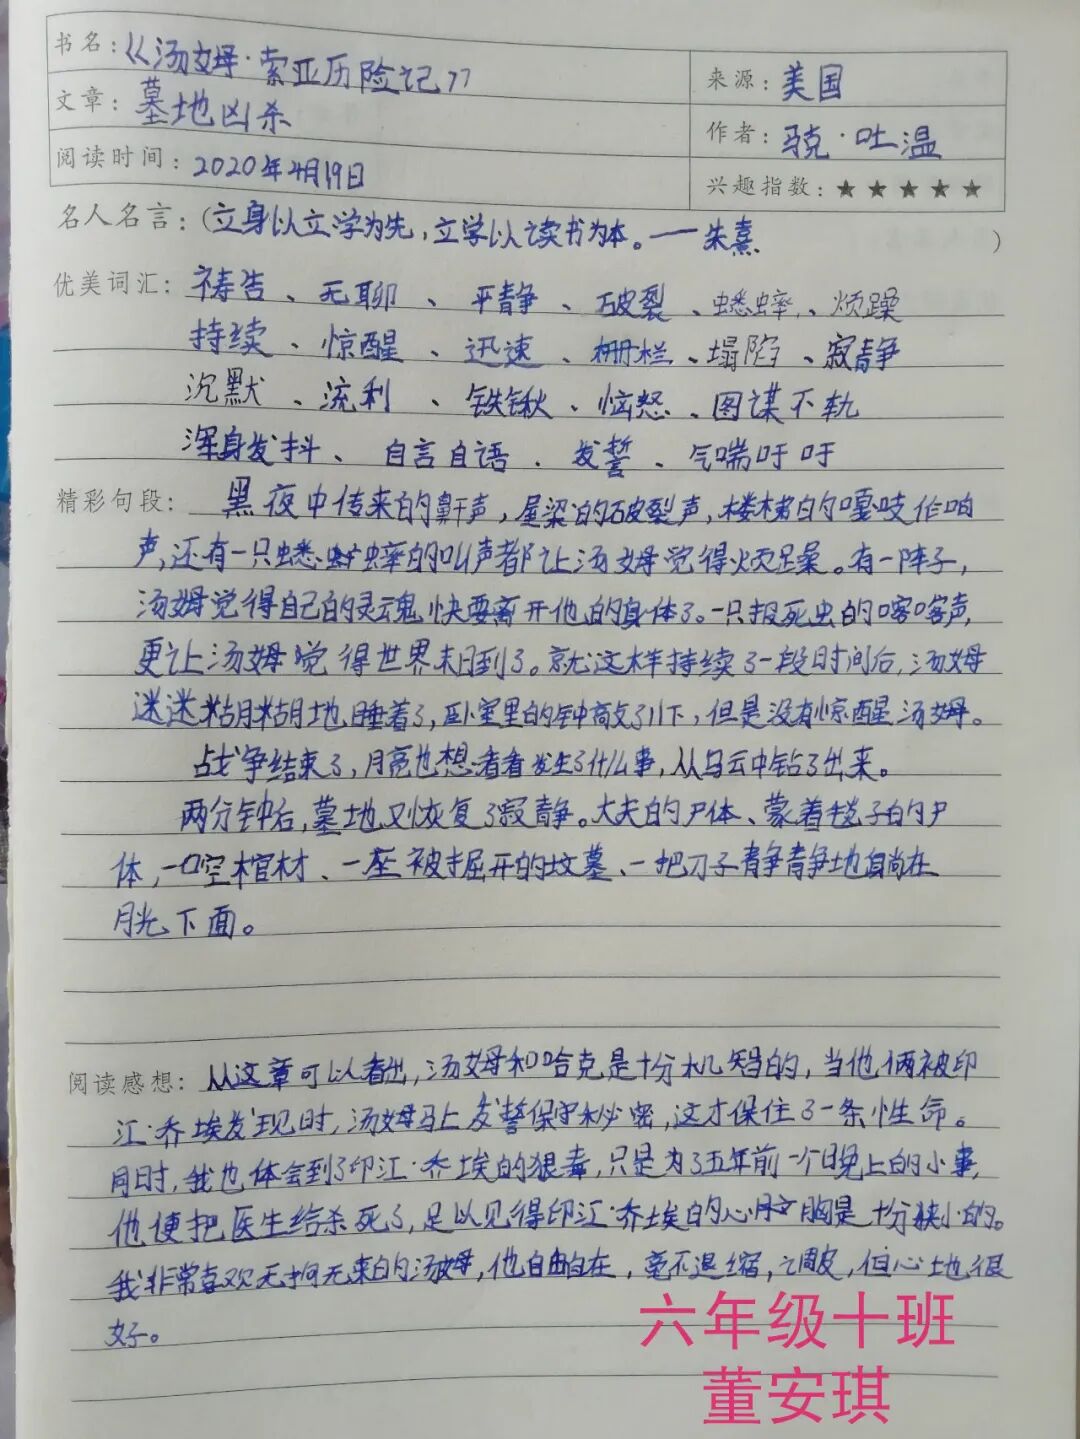 书名：《汤姆·索亚历险记》
来源：美国
文章：墓地凶杀
作者：马克·吐温
阅读时间：2020年4月19日
兴趣指数：★★★★★
名人名言：(立身以立学为先，立学以读书为本。——朱熹)
优美词汇：祷告、无聊、平静、破裂、蟋蟀、烦躁
持续、惊醒、迅速、栅栏、塌陷、寂静
沉默、流利、铁锹、恼怒、图谋不轨
浑身发抖、自言自语、发誓、气喘吁吁
精彩句段：黑夜中传来的鼾声，屋梁的破裂声，楼梯的嘎吱作响
声，还有一只蟋蟀的叫声都让汤姆觉得烦躁。有一阵子，
汤姆觉得自己的灵魂快要离开他的身体了。一只报死虫的喀喀声，
更让汤姆觉得世界末日到了。就这样持续了一段时间后，汤姆
迷迷糊糊地睡着了，卧室里的钟敲了11下，但是没有惊醒汤姆。
战争结束了，月亮也想看看发生了什么事，从乌云中钻了出来。
两分钟后，墓地又恢复了寂静。大夫的尸体、蒙着毯子的尸
体，一口空棺材、一座被掘开的坟墓、一把刀子静静地躺在
月光下面。
阅读感想：从这章可以看出，汤姆和哈克是十分机智的，当他俩被印
江·乔埃发现时，汤姆马上发誓保守秘密，这才保住了一条性命。
同时，我也体会到了印江·乔埃的狠毒，只是为了五年前一个晚上的小事，
他便把医生给杀死了，足以见得印江·乔埃的心胸是十分狭小的。
我非常喜欢无拘无束的汤姆，他自由自在，毫不退缩，调皮，但心地很
好。
六年级十班
董安琪